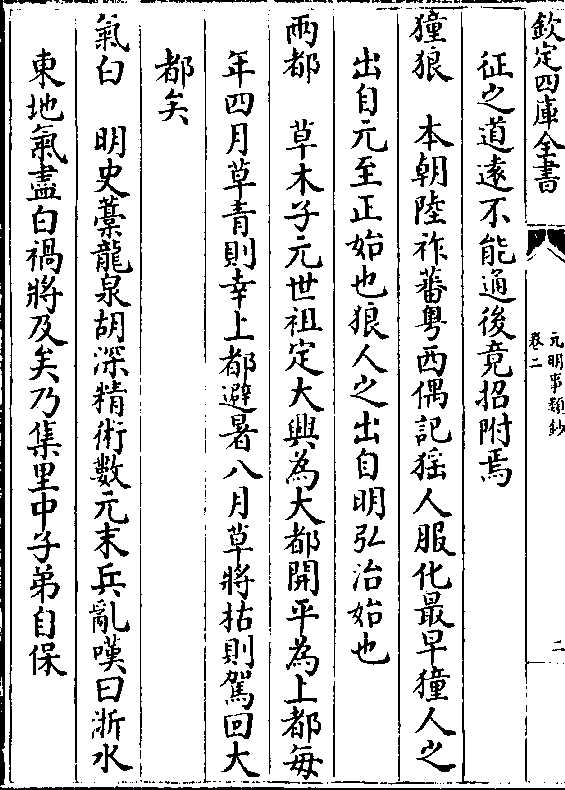 欽定四庫全書
元明事類鈔
卷二
二
征之道逺不能通後竟招附焉
獞狼　本朝陸祚蕃粤西偶記猺人服化最早獞人之
出自元至正始也狼人之出自明弘治始也
兩都　草木子元世祖定大興為大都開平為上都毎
年四月草青則幸上都避暑八月草將枯則駕回大
都矣
氣白　明史藁龍泉胡深精術數元末兵亂嘆曰浙水
東地氣盡白禍將及矣乃集里中子弟自保